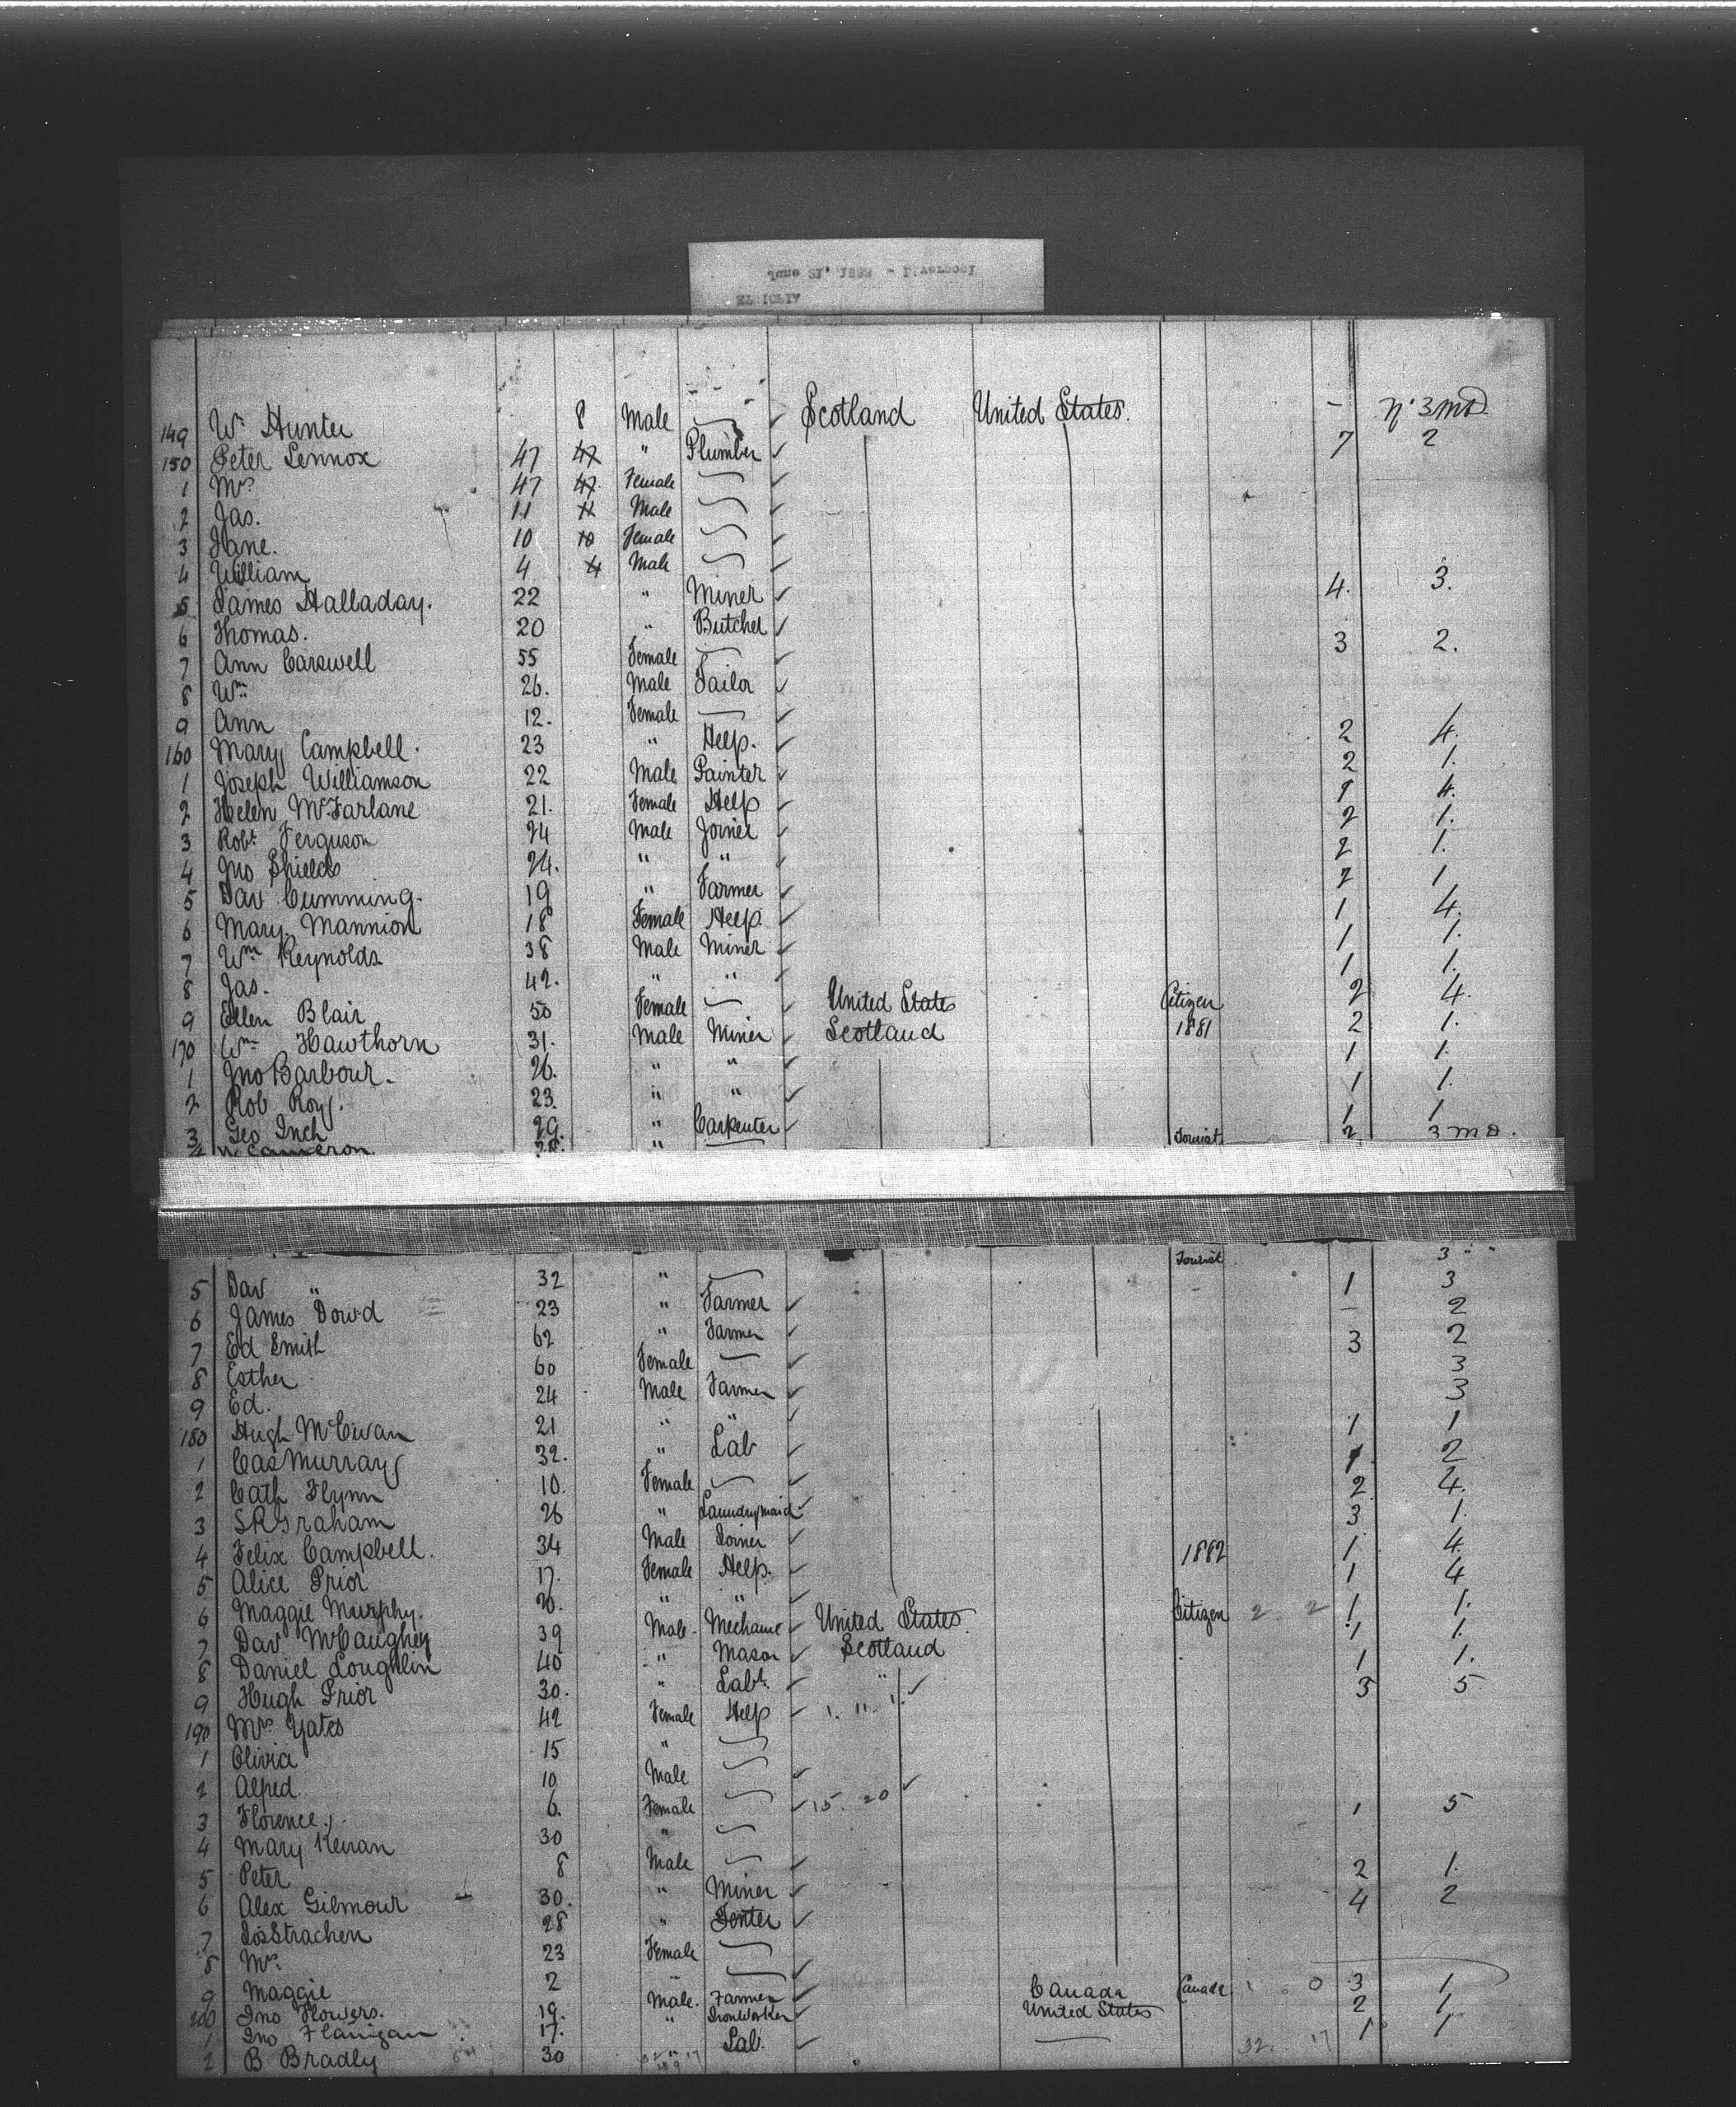 149 Wm Hunter 8 Male Scotland United States. - No 3 md
150 Peter Lennox 47 47 " Plumber 7 2
1 Mrs 47 47 Female
2 Jas. 11 11 Male
3 Jane. 10 10 Female
4 William 4 4 Male
5 James Halladay. 22 " Miner 4. 3.
6 Thomas. 20 " Butcher
7 Ann Carswell 55 Female 3 2.
8 Wm 26. Male Tailor
9 Ann 12. Female
160 Mary Campbell. 23 " Help. 2 4.
1 Joseph Williamson 22 Male Painter 2 1.
2 Helen McFarlane 21. Female Help 4.
3 Robt Ferguson 24 Male Joiner 2 1.
4 Jno Shields 24. " " 2 1.
5 Dav Cumming. 19 " Farmer 2 1
6 Mary Mannion 18 Female Help 1 4.
7 Wm Reynolds 38 Male Miner 1 1.
8 Jas. 42. " " 1 1.
9 Ellen Blair 50 Female United States Citizen 2 4.
170 Wm Hawthorn 31. Male Miner Scotland 1881 2 1.
1 Jno Barbour. 26. " " 1 1.
2 Rob Roy. 23. " " 1 1.
3 Geo Inch 29. " Carpenter 1 1
4 W Cameron 28. " Tourist 2 3 md.
Tourist 3 " "
5 Dav " 32 "
6 James Dowd 23 " Farmer 1 3
7 Ed Smith 62 " Farmer - 2
8 Esther 60 Female 3 2
9 Ed. 24 Male Farmer 3
180 Hugh McEwan 21 " " 3
1 Cas Murray 32. " Lab 1 1
2 Cath Flynn 10. Female 1 2
3 S R Graham 26 " Laundrymaid 2 4.
4 Felix Campbell. 34 Male Joiner 1882 3 1.
5 Alice Prior 17. Female Help. 1 4.
6 Maggie Murphy. 20. " " 1 4
7 Dav McCaughey 39 Male. Mechanic United States Citizen 2 2 1 1.
8 Daniel Loughlin 40 " Mason Scotland 1 1.
9 Hugh Prior 30. " Labr " 1 1.
190 Mrs Yates 42 Female Help 3 5
1 Olivia 15 "
2 Alfred. 10 Male
3 Florence. 6. Female 15. 20
4 Mary Kenan 30 " 1 5
5 Peter 8 Male
6 Alex Gilmour 30. " Miner 2 1.
7 Jos Strachen 28 " Tenter 4 2
8 Mrs 23 Female
9 Maggie 2 "
200 Jno Flowers. 19. Male. Farmer Canada Canada 0 3 1
1 Jno Flanigan 17. " Ironworker United States 2 1
2 B Bradly 30 " Lab. 32. 17 1 1